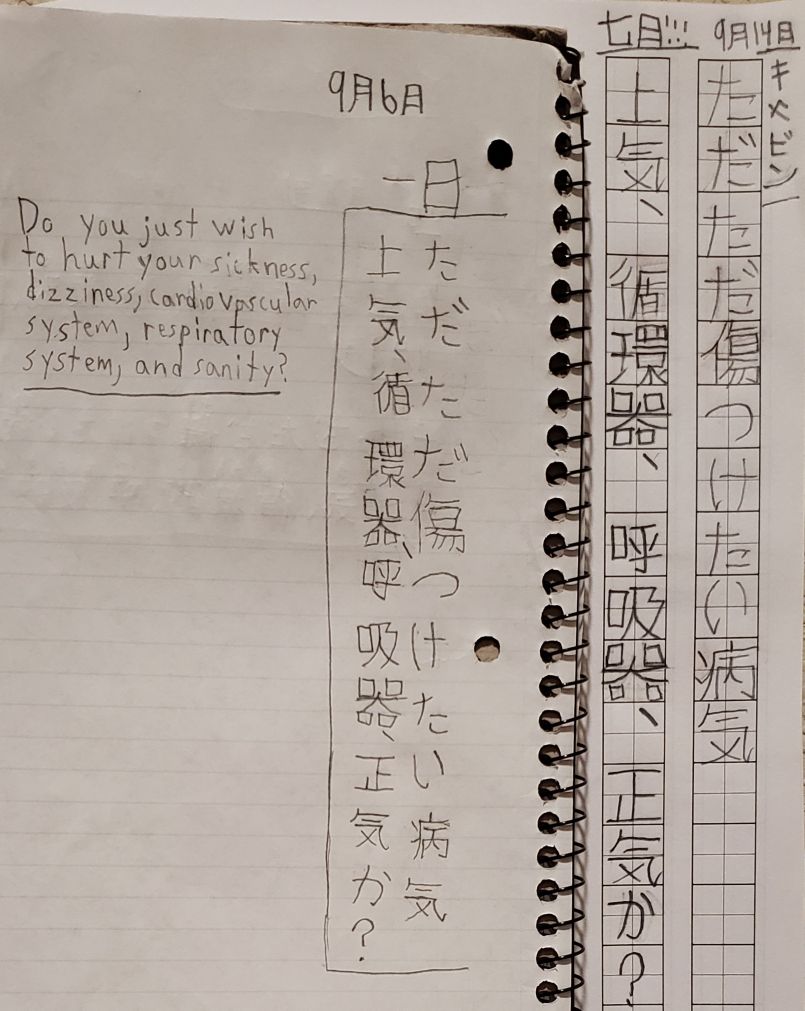 9月6日
一日
Do you just wish
to hurt your sickness,
dizziness, cardiovascular
system, respiratory
system, and sanity?
ただただ傷つけたい病気
上気、循環器、呼吸器、正気か?
七日!!!
9月14日
ただただ傷つけたい病気
上気、循環器、呼吸器、正気か?